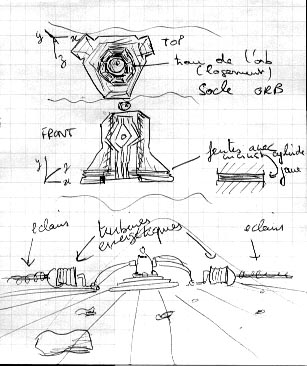 y x z
TOP
trou de l'orb
(logement)
Socle ORB
FRONT
y z x
fentes avec
minus cylindre
jaune
eclairs
turbines
energetiques
eclairs